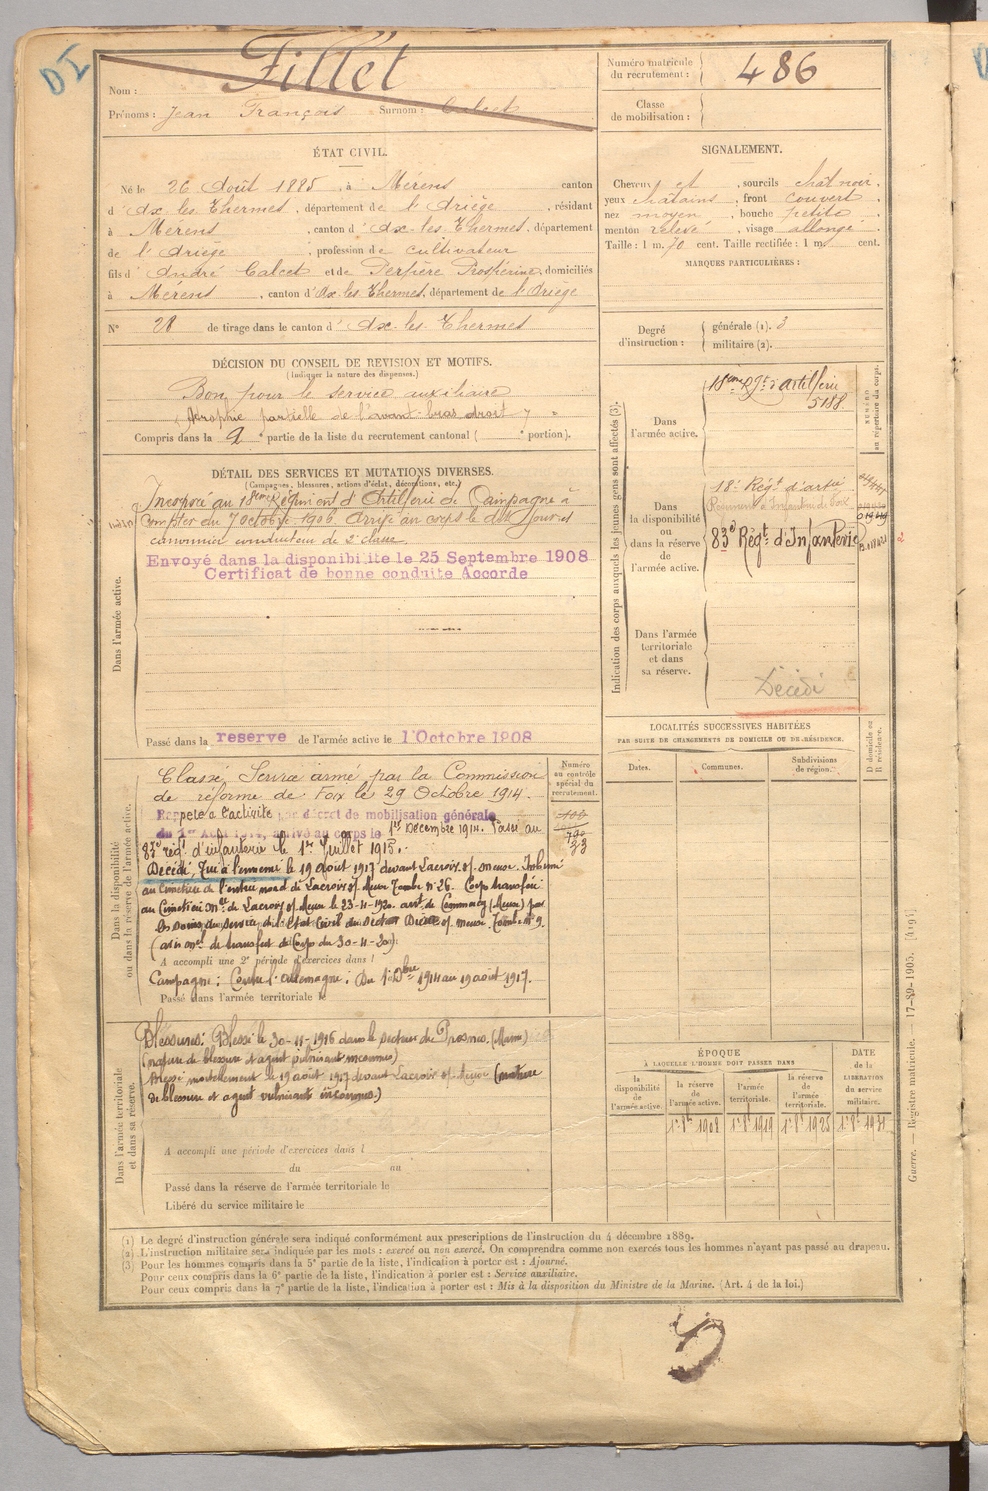 DI
Nom : Fillet
Prénoms : Jean François Surnom : Calcet
Numéro matricule du recrutement : 486
Classe de mobilisation :
ÉTAT CIVIL.
Né le 26 Août 1885, à Mérens canton
d'Ax les Thermes, département de l'Ariège, résidant
à Mérens, canton d'Ax-les-Thermes, département
de l'Ariège, profession de cultivateur
fils d'André Calcet et de Prospérine, domiciliés
à Mérens, canton d'Ax-les-Thermes, département de l'Ariège
N° 28 de tirage dans le canton d'Ax-les-Thermes
SIGNALEMENT.
Cheveux et, sourcils chât noir,
yeux châtains, front couvert,
nez moyen, bouche petite,
menton relevé, visage allongé.
Taille : 1 m. 70 cent. Taille rectifiée : 1 m. cent.
MARQUES PARTICULIÈRES :
Degré d'instruction :
générale (1). 3
militaire (2).
DÉCISION DU CONSEIL DE REVISION ET MOTIFS.
(Indiquer la nature des dispenses.)
Bon pour le service auxiliaire
Atrophie partielle de l'avant-bras droit
Compris dans la 2e partie de la liste du recrutement cantonal ( e portion).
DÉTAIL DES SERVICES ET MUTATIONS DIVERSES.
(Campagnes, blessures, actions d'éclat, décorations, etc.)
Dans l'armée active.
Incorporé au 18eme Régiment d'Artillerie de Campagne à
compter du 7 octobre 1906. Arrivé au corps le dit jour et
canonnier conducteur de 2e classe.
Envoyé dans la disponibilité le 25 Septembre 1908
Certificat de bonne conduite Accorde
Passé dans la reserve de l'armée active le 1 Octobre 1908
Indication des corps auxquels les jeunes gens sont affectés (3).
NUMÉRO au répertoire du corps.
Dans l'armée active.
18eme Rgt d'Artillerie
5188
Dans la disponibilité ou dans la réserve de l'armée active.
18e Régt d'artie
Régiment d'Infanterie de Foix
83e Régt d'Infanterie
2
Dans l'armée territoriale et dans sa réserve.
Décédé
LOCALITÉS SUCCESSIVES HABITÉES
PAR SUITE DE CHANGEMENTS DE DOMICILE OU DE RÉSIDENCE.
Dates.
Communes.
Subdivisions de région.
D domicile ou R résidence.
Dans la disponibilité ou dans la réserve de l'armée active.
Numéro au contrôle spécial du recrutement.
Classé Service armé par la Commission
de réforme de Foix le 29 Octobre 1914.
Rappelé à l'activité par décret de mobilisation générale
du 1er Août 1914, arrivé au corps le 1er Décembre 1914. Passé au
83e régt d'infanterie le 1er Juillet 1915.
Décédé, Tué à l'ennemi le 19 août 1917 devant Lacroix s/ Meuse. Inhumé
au Cimetière de l'entrée nord de Lacroix s/ Meuse Tombe N° 26. Corps transféré
au Cimetière Mre de Lacroix s/ Meuse le 23-11-1920. arrt de Commercy (Meuse) par
les soins du service de l'Etat Civil du Secteur s/ meuse. Tombe N° 9.
(avis mel de transfert de Corps du 30-11-20).
A accompli une 2e période d'exercices dans l
Campagne : Contre l'Allemagne : Du 1er Dbre 1914 au 19 août 1917.
Passé dans l'armée territoriale le
Dans l'armée territoriale et dans sa réserve.
Blessures : Blessé le 30-11-1916 dans le secteur de Prosnes (Marne)
(nature de blessure et agent vulnérant inconnus)
Blessé mortellement le 19 août 1917 devant Lacroix s/ Meuse (nature
de blessure et agent vulnérant inconnus.)
A accompli une période d'exercices dans l
du au
Passé dans la réserve de l'armée territoriale le
Libéré du service militaire le
ÉPOQUE
À LAQUELLE L'HOMME DOIT PASSER DANS
la disponibilité de l'armée active.
la réserve de l'armée active.
l'armée territoriale.
la réserve de l'armée territoriale.
DATE de la LIBÉRATION du service militaire.
1er 8bre 1908
1er 8bre 1919
1er 8bre 1925
1er 8bre 1931
(1) Le degré d'instruction générale sera indiqué conformément aux prescriptions de l'instruction du 4 décembre 1889.
(2) L'instruction militaire sera indiquée par les mots : exercé ou non exercé. On comprendra comme non exercés tous les hommes n'ayant pas passé au drapeau.
(3) Pour les hommes compris dans la 5e partie de la liste, l'indication à porter est : Ajourné.
Pour ceux compris dans la 6e partie de la liste, l'indication à porter est : Service auxiliaire.
Pour ceux compris dans la 7e partie de la liste, l'indication à porter est : Mis à la disposition du Ministre de la Marine. (Art. 4 de la loi.)
Guerre. — Registre matricule. — 17-89-1905. [4194]